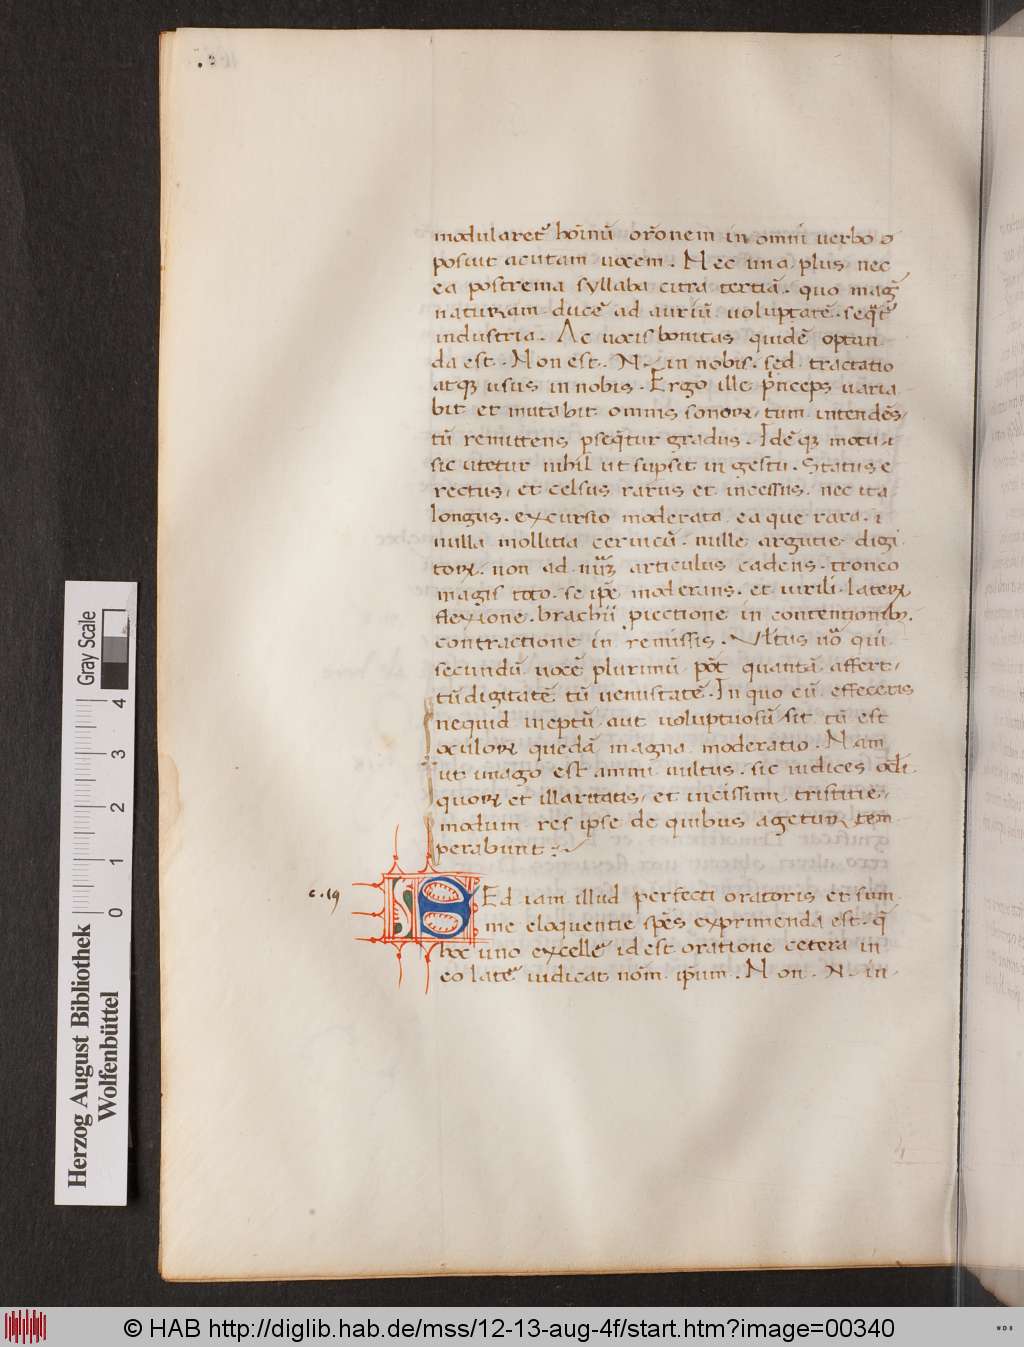 modularet᷑ hoı̄nū or̄onem in omni verbo o
posuit acutam uocem. Nec una plus nec
ea postrema syllaba citra tertiā. quo mag̃
naturam ducē ad auriū uoluptatē. seq̃t᷑
industria. Ac uocis bonitas quidē optan
da est. Non est. N. in nobis. sed tractatio
atqꝫ usus in nobis. Ergo ille p̃nceps uaria
bit et mutabit omnis sonoꝝ, tum intendēs,
tū remittens ꝑseq̃tur gradus. Idēqꝫ motu.i
sic utetur nihil ut supsit in gestu. Status e
rectus, et celsus rarus et incessus. nec ita
longus. excursio moderata ea que rara. i
nulla mollitia ceruicū. nulle argutie digi
toꝝ. non ad nūꝫ articulus cadens. tronco
magis toto. se ip̄e moderans. et uirili lateꝝ
flexione. brachii piectione in contentionibꝫ.
contractione in remissis. Vl̃tus uō qui
secundū uocē plurimū pōt quantā affert,
tū digitatē tū uenustatē. In quo cū effeceris
nequid ineptū aut uoluptuosū sit tū est
oculoꝝ quedā magna moderatio. Nam
ut imago est animi uultus. sic iudices oc̄li
quoꝝ et illaritatis, et incissim tristitie,
modum res ipse de quibus agetur tem
perabunt :~
c. 19
SEd iam illud perfecti oratoris et sum
me eloquentie spēs exprimenda est. q̄
hoc uno excellē id est oratione cetera in
eo latē iudicat nōm ip̄um. Non. N. in
Gray Scale
0 1 2 3 4
Herzog August Bibliothek
Wolfenbüttel
© HAB http://diglib.hab.de/mss/12-13-aug-4f/start.htm?image=00340